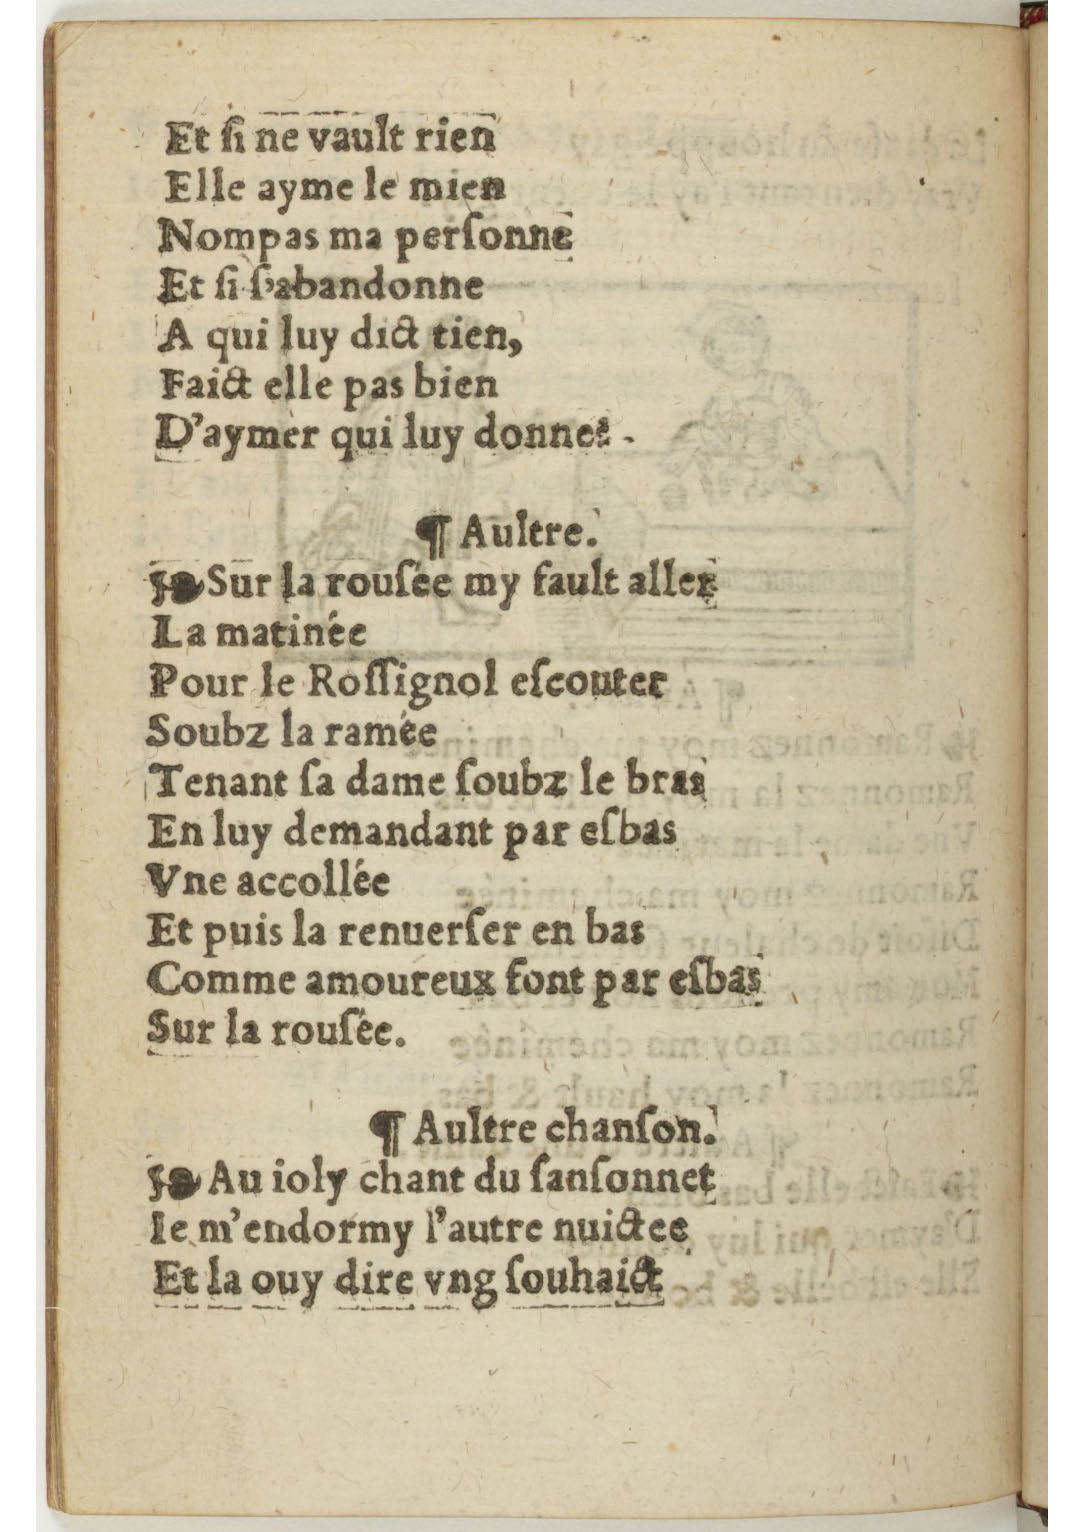 Et ſi ne vault rien
Elle ayme le mien
Nompas ma perſonne
Et ſi ſ'abandonne
A qui luy dict tien,
Faict elle pas bien
D'aymer qui luy donnes.
¶ Aultre.
Sur la rouſée my fault aller
La matinée
Pour le Roſſignol eſcouter
Soubz la ramée
Tenant ſa dame ſoubz le bras
En luy demandant par eſbas
Vne accollée
Et puis la renuerſer en bas
Comme amoureux font par eſbas
Sur la rouſée.
¶ Aultre chanſon.
Au ioly chant du ſanſonnet
Ie m'endormy l'autre nuictee
Et la ouy dire vng ſouhaict